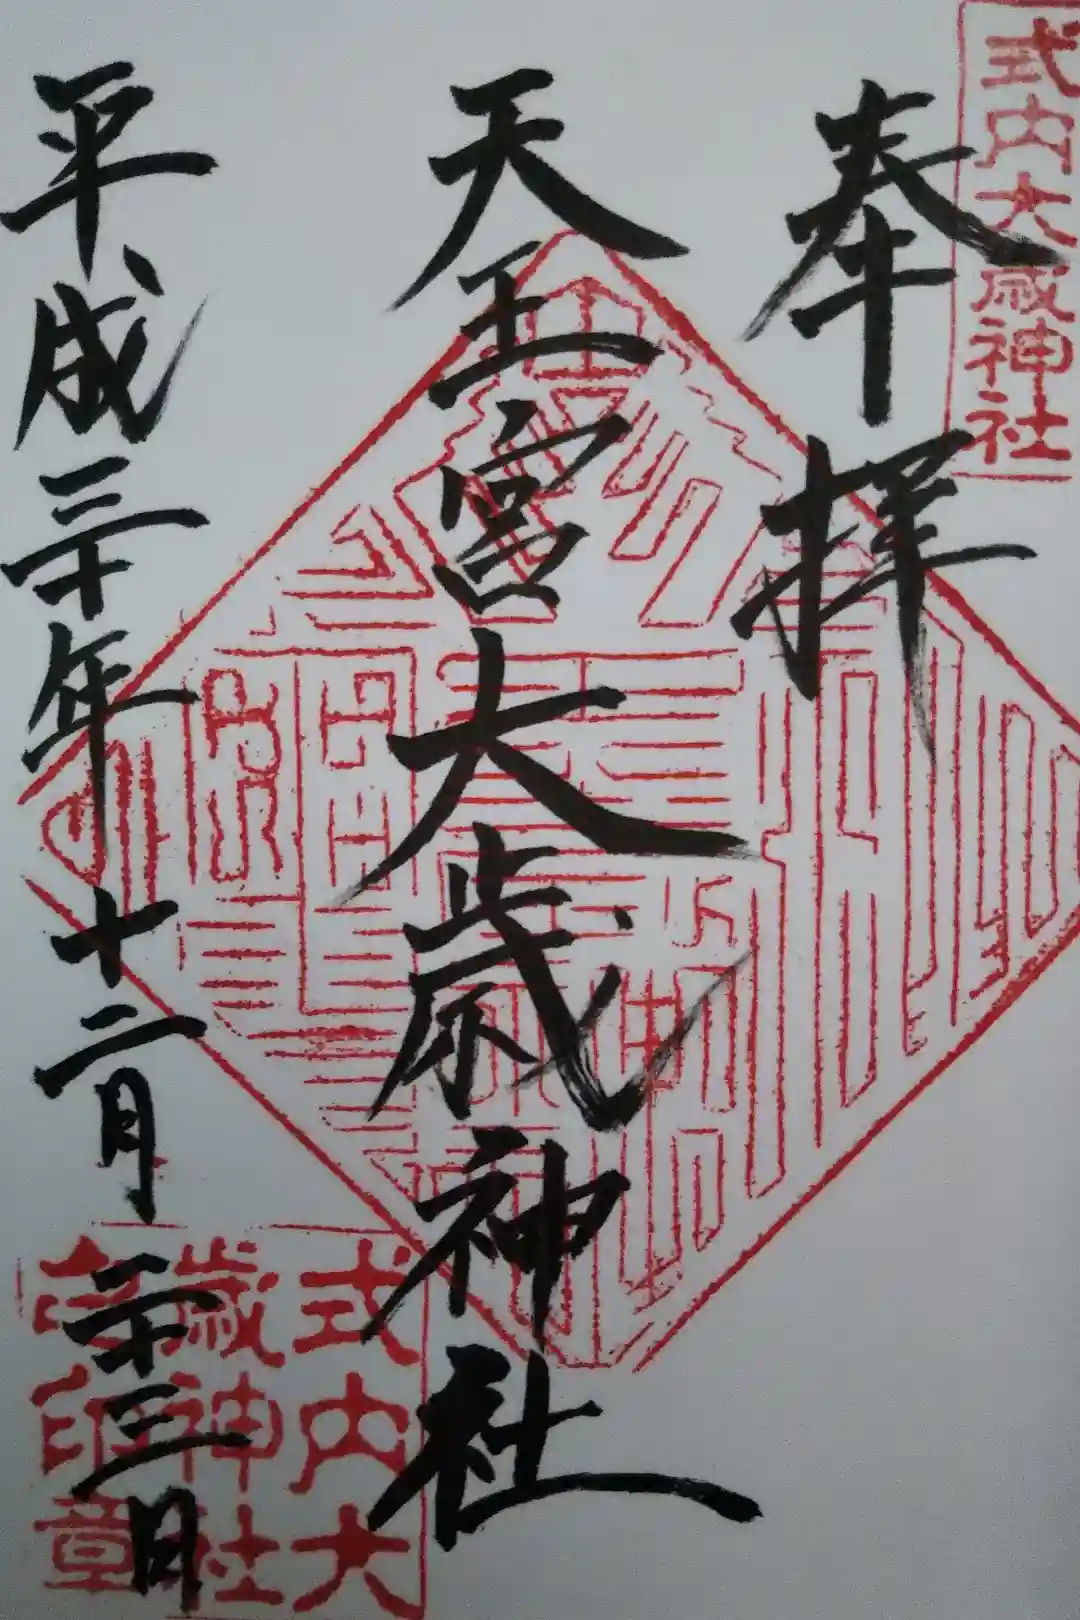 式内大歳神社
奉拝
天王宮大歳神社
平成三十年十二月二十三日
式内大
歳神社
印章